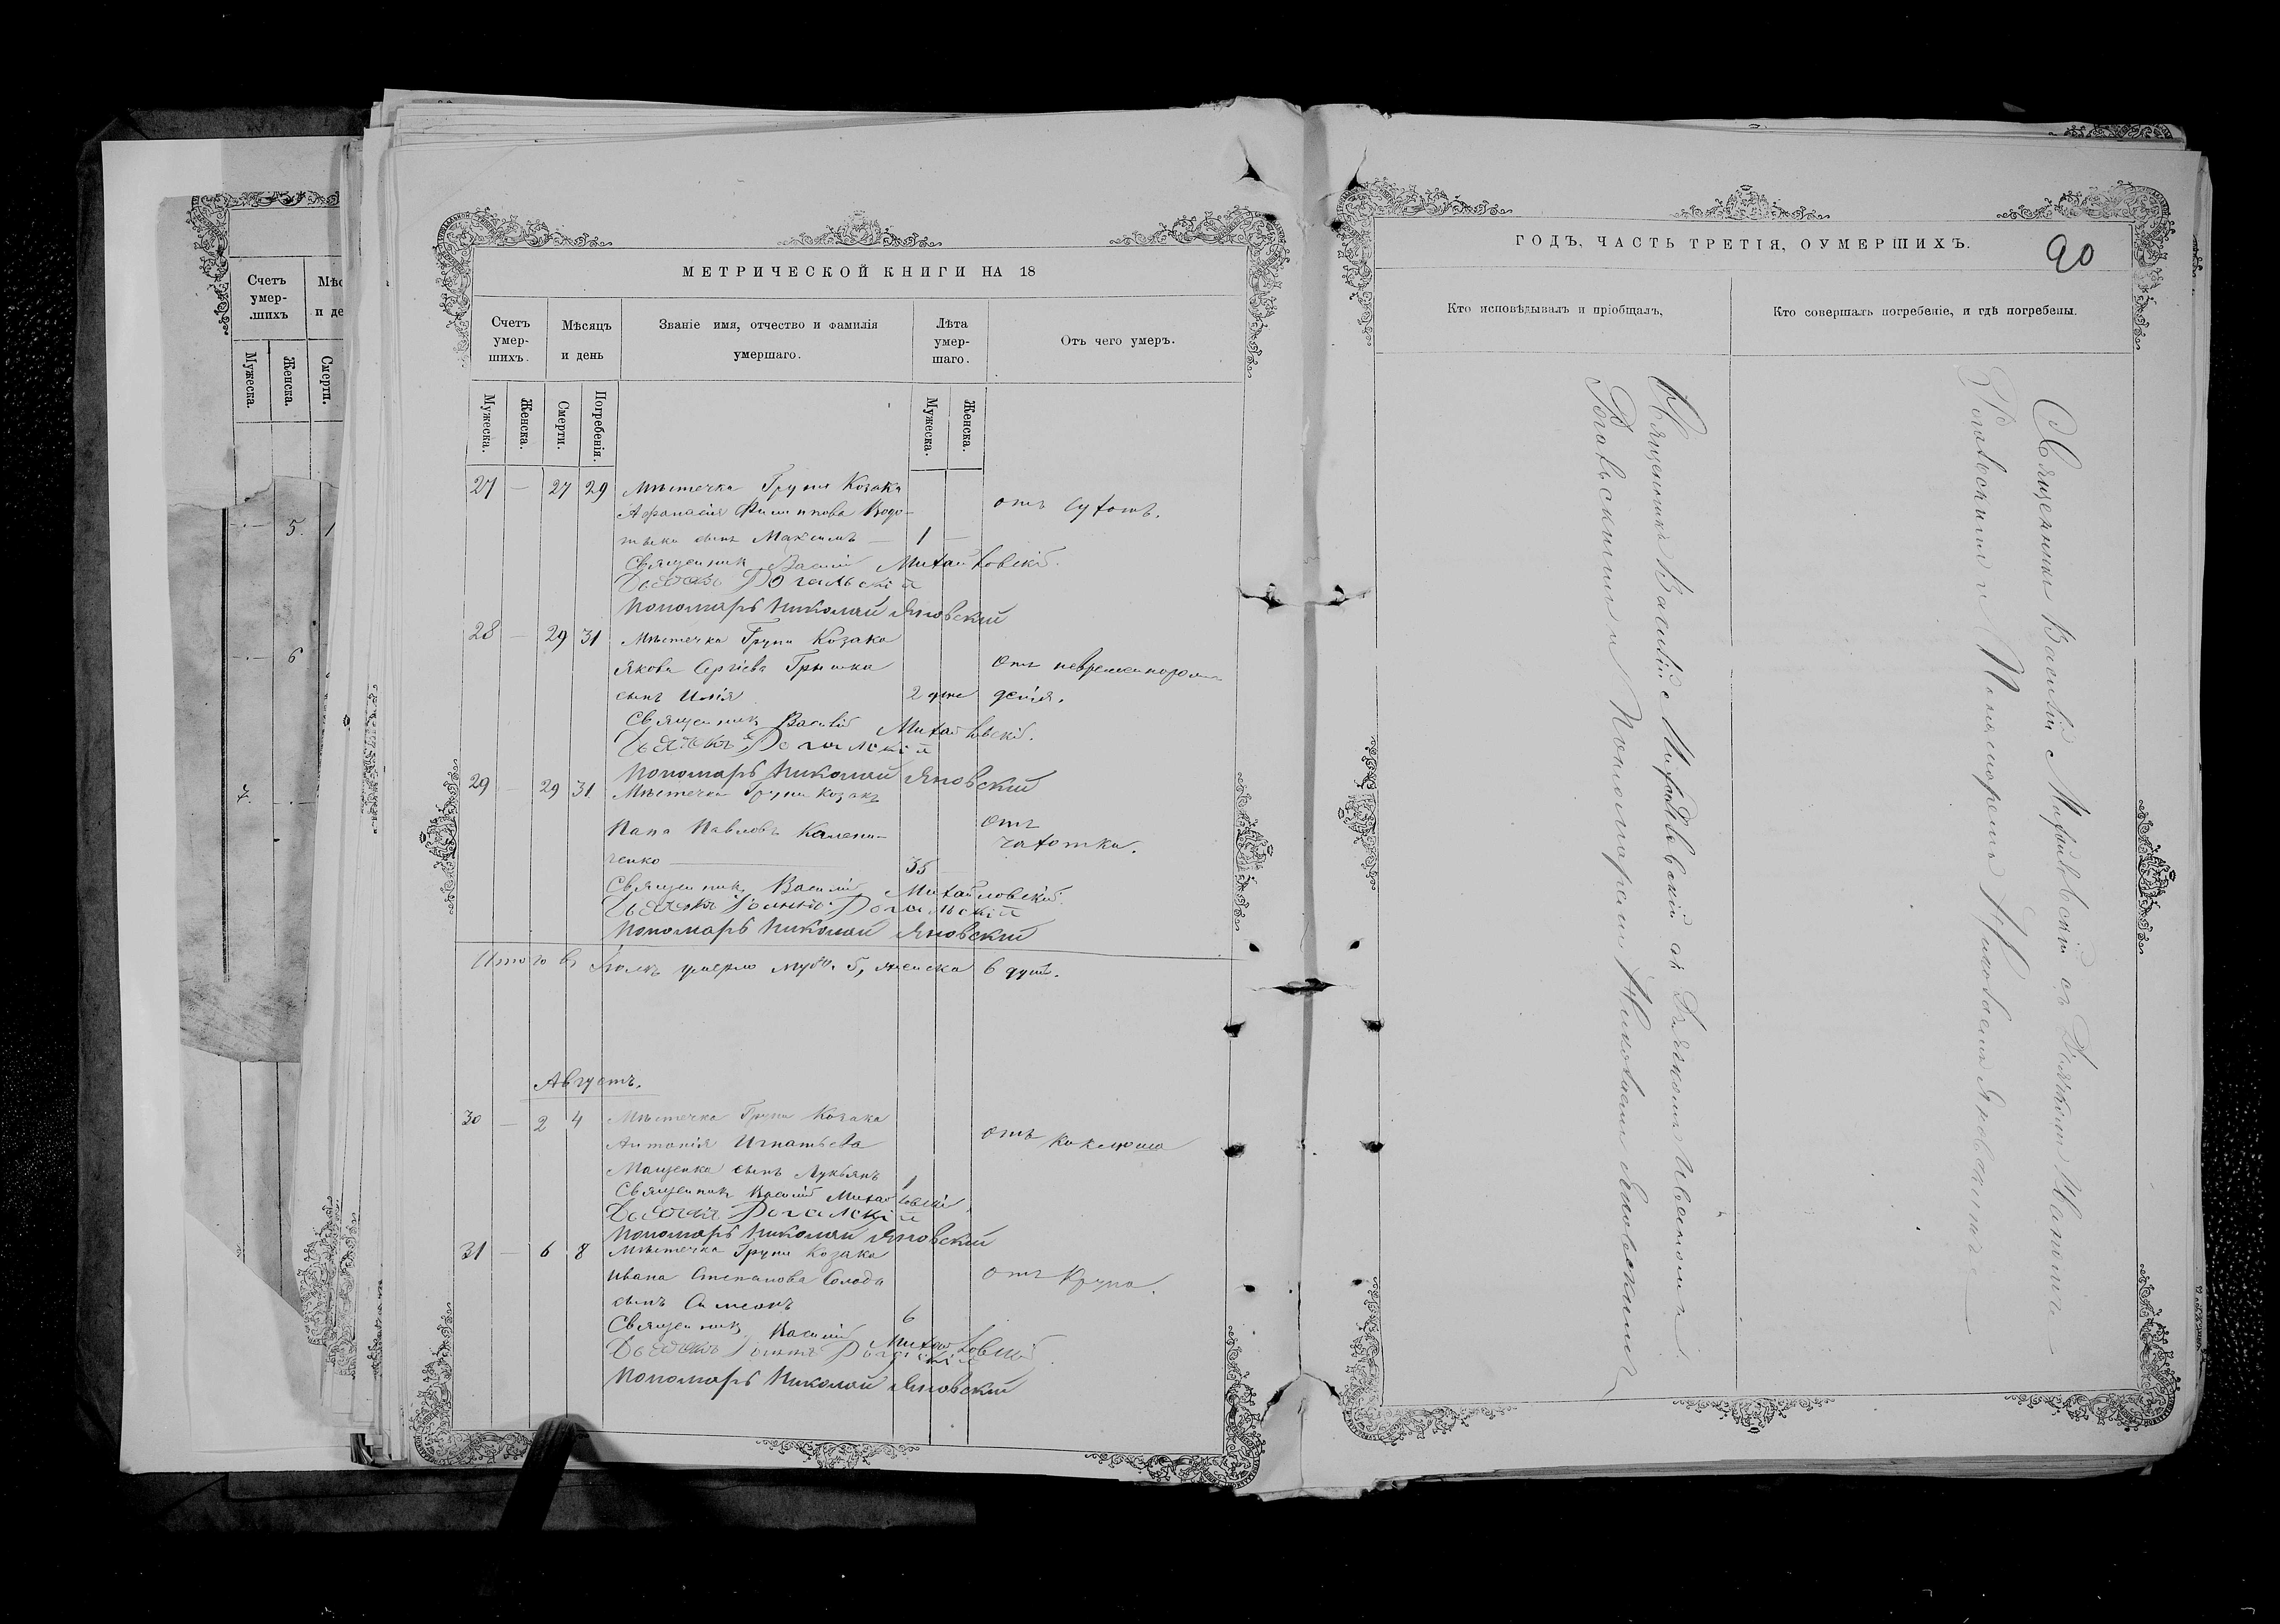 Счетъ
умер-
шихъ
Мужеска.
Женска.
Смерти.
5.
6
7.
МЕТРИЧЕСКОЙ КНИГИ НА 18
Счетъ умер- шихъ.
Мѣсяцъ и день
Званіе имя, отчество и фамилія умершаго.
Лѣта умер- шаго.
Отъ чего умеръ.
Мужеска.
Женска.
Смерти.
Погребенія.
Мужеска.
Женска.
27 — 27 29 Мѣстечка Груня Козака
Афанасія Филипова Водо-
сынъ Максимъ — 1 —
отъ сухотъ.
Священникъ Василій Михайловскій.
Дьячокъ Рогальскій
Пономарь Николай Яновскій
28 — 29 31 Мѣстечка Груня Козака
Якова Сергіева Гришка
сынъ Илія 2 дня
отъ невременнорож-
денія.
Священникъ Василій Михайловскій.
Дьячокъ Рогальскій
Пономарь Николай Яновскій
29 — 29 31 Мѣстечка Груня Козакъ
Павловъ Калени-
ченко — 35
отъ
чахотки.
Священникъ Василій Михайловскій.
Дьячокъ Іоаннъ Рогальскій
Пономарь Николай Яновскій
Итого въ Іюлѣ умерло муж. 5, женска 6 душъ.
Августъ.
30 — 2 4 Мѣстечка Груня Козака
Антонія Игнатьева
Мащенка сынъ Лукьянъ 1
отъ коклюша
Священникъ Василій Михайловскій.
Дьячокъ Рогальскій
Пономарь Николай Яновскій
31 — 6 8 Мѣстечка Груня Козака
Ивана Степанова Солода
сынъ Симеонъ 6
отъ Крупа.
Священникъ Василій Михайловскій
Дьячокъ Іоаннъ Рогальскій
Пономарь Николай Яновскій
ГОДЪ, ЧАСТЬ ТРЕТІЯ, О УМЕРШИХЪ.
90
Кто исповѣдывалъ и пріобщалъ,
Кто совершалъ погребеніе, и гдѣ погребены.
Священникъ Василій Михайловскій съ Дьячкомъ Иваномъ
Рогальскимъ и Пономаремъ Николаемъ Яновскимъ
Священникъ Василій Михайловскій съ Дьячкомъ Иваномъ
Рогальскимъ и Пономаремъ Николаемъ Яновскимъ